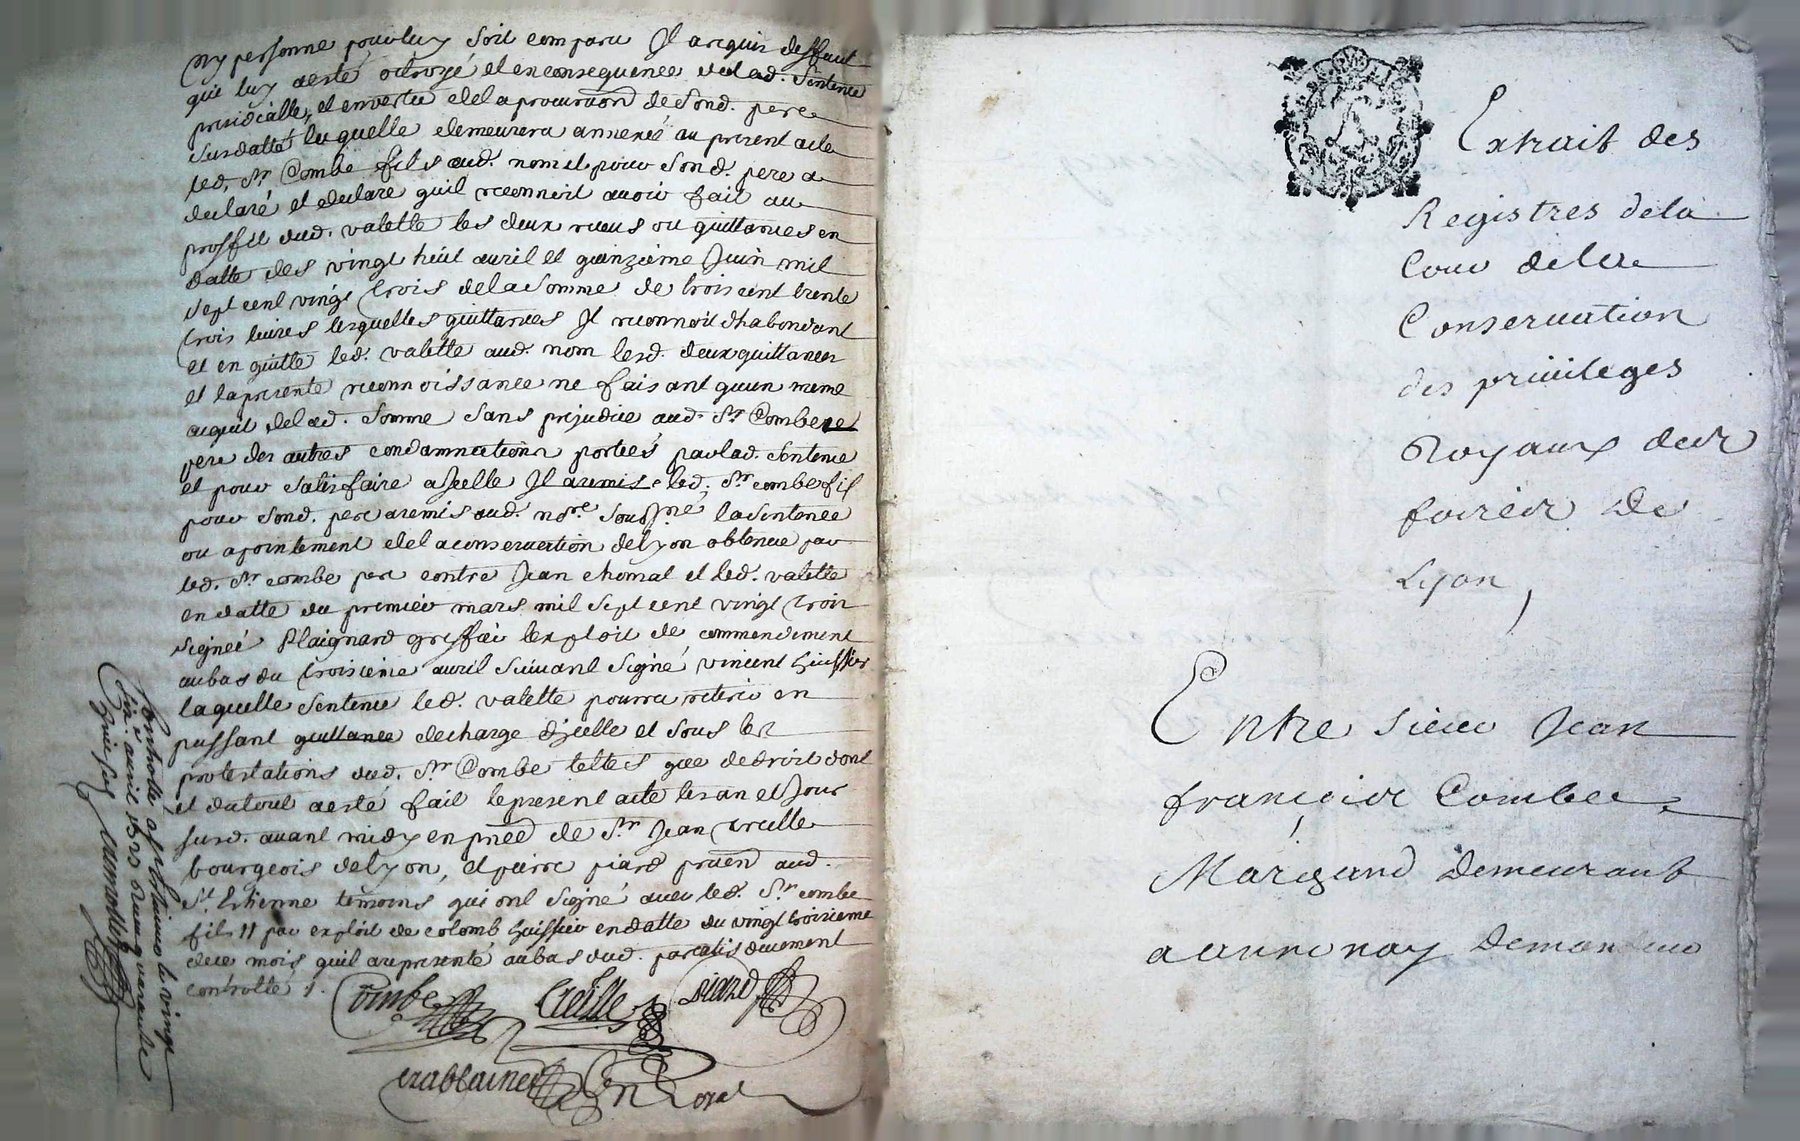 ny personne pour luy soit comparu Il a requis deffaut
qui luy a esté octroyé et en consequence de lad. sentence
presidialle, et en vertu de la procuration de sond. pere
susdatté laquelle demeurera annexée au present acte
led. Sr Combe fils aud. nom et pour sond. pere a
declaré et declare quil reconnoit avoir fait au
proffit dud. valette les deux receus ou quittances en
datte des vingt huit avril et quinzieme Juin mil
sept cent vingt trois de la somme de trois cent trente
trois livres lesquelles quittances Il reconnoit d'habondant
et en quitte led. valette aud. nom lesd. deux quittances
et la presente reconnoissance ne faisant qu'un meme
acquit de lad. somme sans prejudice aud. Sr Combe
pere des autres condamnations portées par lad. sentence
et pour satisfaire a Icelle Il a remis led. Sr combe fils
pour sond. pere a remis aud. nore. soussné la sentence
ou apointement de la conservation de lyon obtenue par
led. Sr combe pere contre Jean chomat et led. valette
en datte du premier mars mil sept cent vingt trois
signée Plaignard greffier l'exploit de commendement
au bas du troisieme avril suivant signé vincent huissier
laquelle sentence led. valette pourra retirer en
passant quittance decharge d'jcelle et sous les
protestations dud. Sr Combe telles que de droit dont
et du tout a esté fait le present acte les an et Jour
susd. avant midy en pnce de Sr Jean treille
bourgeois de lyon, et pierre piard praen aud.
St. Etienne temoins qui ont signé avec led. Sr combe
fils // par exploit de colomb huissier en datte du vingt troisieme
de ce mois quil a representé au bas dud. pareatis duement
controllé /.
Combe treille piard
Nore Royal
Controllé a St Etienne le vingt
six avril 1723 Reçu quarante
huit sols
Extrait des
Registres de la
Cour de la
Conservation
des privileges
Royaux des
foires de
Lyon,
Entre sieur Jean
françois Combe
Margand demeurant
a annonay demandeur